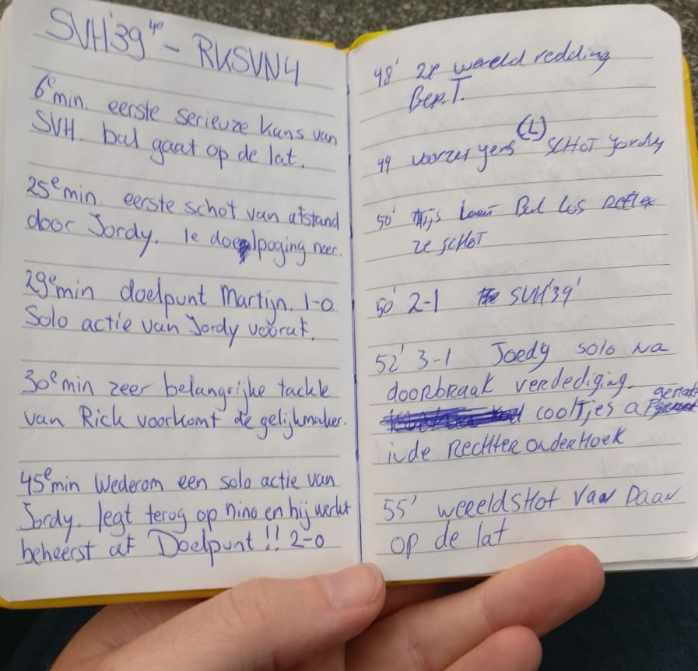 SVH'39 4e - RKSVN4
6e min. eerste serieuze kans van
SVH. bal gaat op de lat.
25e min. eerste schot van afstand
door Jordy. 1e doelpoging neer.
29e min doelpunt Martijn. 1-0
Solo actie van Jordy vooraf.
30e min zeer belangrijke tackle
van Rick voorkomt de gelijkmaker.
45e min Wederom een solo actie van
Jordy. legt terog op nino en hij werkt
beheerst af Doelpunt !! 2-0
48' 2e wereld redding
Ber.T.
49 voorzet (L) SCHOT Jordy
50' Bal Los
2e SCHOT
50' 2-1 SVH'39'
52' 3-1 Joedy solo na
doorbraak verdediging.
cooltjes
in de Rechter onderHoek
55' wereldSHot van Daan
op de lat